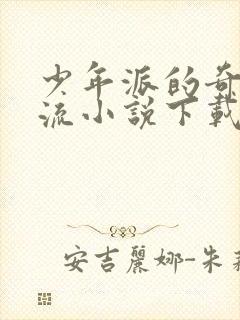 少年派的奇
流小说下载
安吉麗娜-朱莉